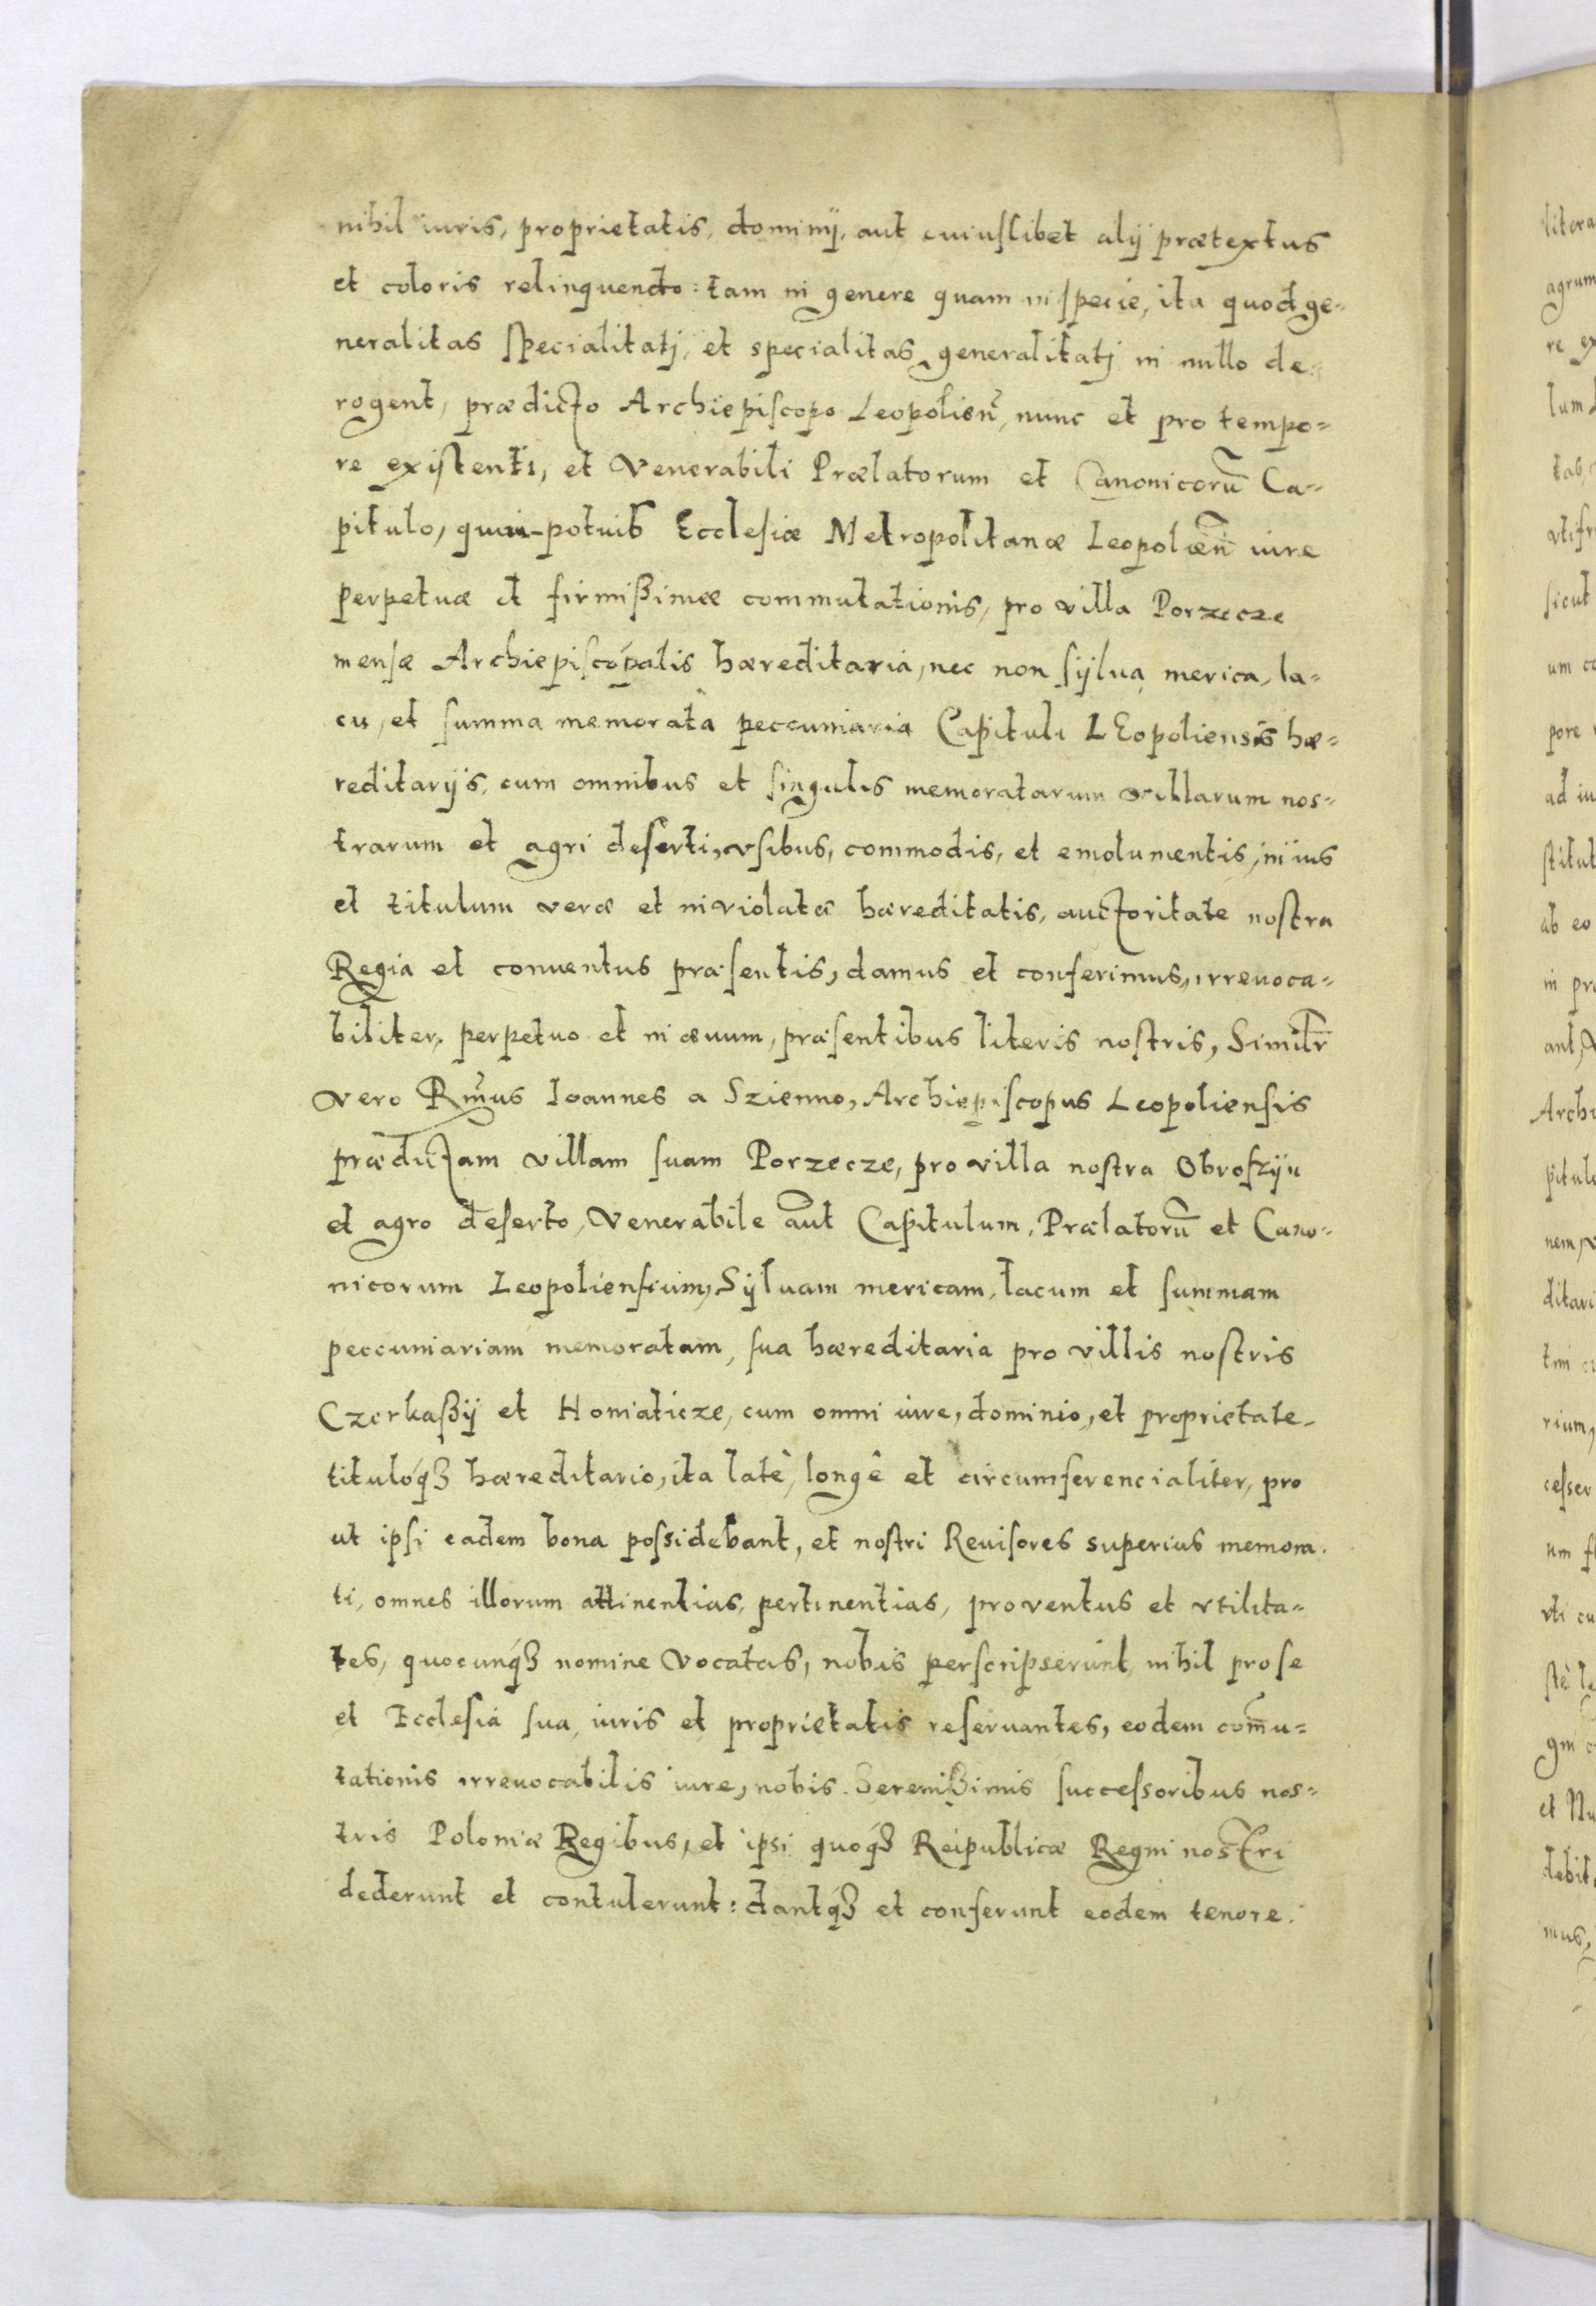 nihil iuris, proprietatis, dominij, aut cuiuslibet alij prætextus
et coloris relinquendo: tam in genere quam in specie, ita quod ge=
neralitas specialitatj, et specialitas generalitatj in nullo de=
rogent, prædicto Archiepiscopo Leopolien̄, nunc et pro tempo=
re existenti, et Venerabili Prælatorum et Canonicorū Ca=
pitulo, Ecclesiæ Metropolitanæ Leopolien̄ iure
perpetuæ et firmißimæ commutationis, pro villa Porzecze
mensæ Archiepiscopalis hæreditaria, nec non sylua merica, la=
cu, et summa memorata peccuniaria Capituli LEopoliensis hæ=
reditarijs, cum omnibus et singulis memoratarum villarum nos=
trarum et agri deserti, vsibus, commodis, et emolumentis, in ius
et titulum veræ et inviolatæ hæreditatis, auctoritate nostra
Regia et conuentus præsentis, damus et conferimus, irreuoca=
biliter, perpetuo et in æuum, præsentibus literis nostris, Similr̄
vero Rm̄us Ioannes a Szienno, Archiepiscopus Leopoliensis
prædictam villam suam Porzecze, pro villa nostra Obroszÿn
et agro deserto, Venerabile aūt Capitulum, Prælatorū et Cano=
nicorum Leopoliensium, Sÿluam mericam, lacum et summam
peccuniariam memoratam, sua hæreditaria pro villis nostris
Czerkaßÿ et Honiaticze, cum omni iure, dominio, et proprietate,
tituloq́ꝫ hæreditario, ita latè, longê et circumferencialiter, pro
ut ipsi eadem bona possidebant, et nostri Reuisores superius memora=
ti, omnes illorum attinentias, pertinentias, proventus et vtilita=
tes, quocunq́ꝫ nomine vocatas, nobis perscripserunt, nihil pro se
et Ecclesia sua iuris et proprietatis reseruantes, eodem com̄u=
tationis irreuocabilis iure, nobis Serenißimis successoribus nos=
tris Poloniæ Regibus, et ipsi quoq́ꝫ Reipublicæ Regni nostri
dederunt et contulerunt: dantq́ꝫ et conferunt eodem tenore.